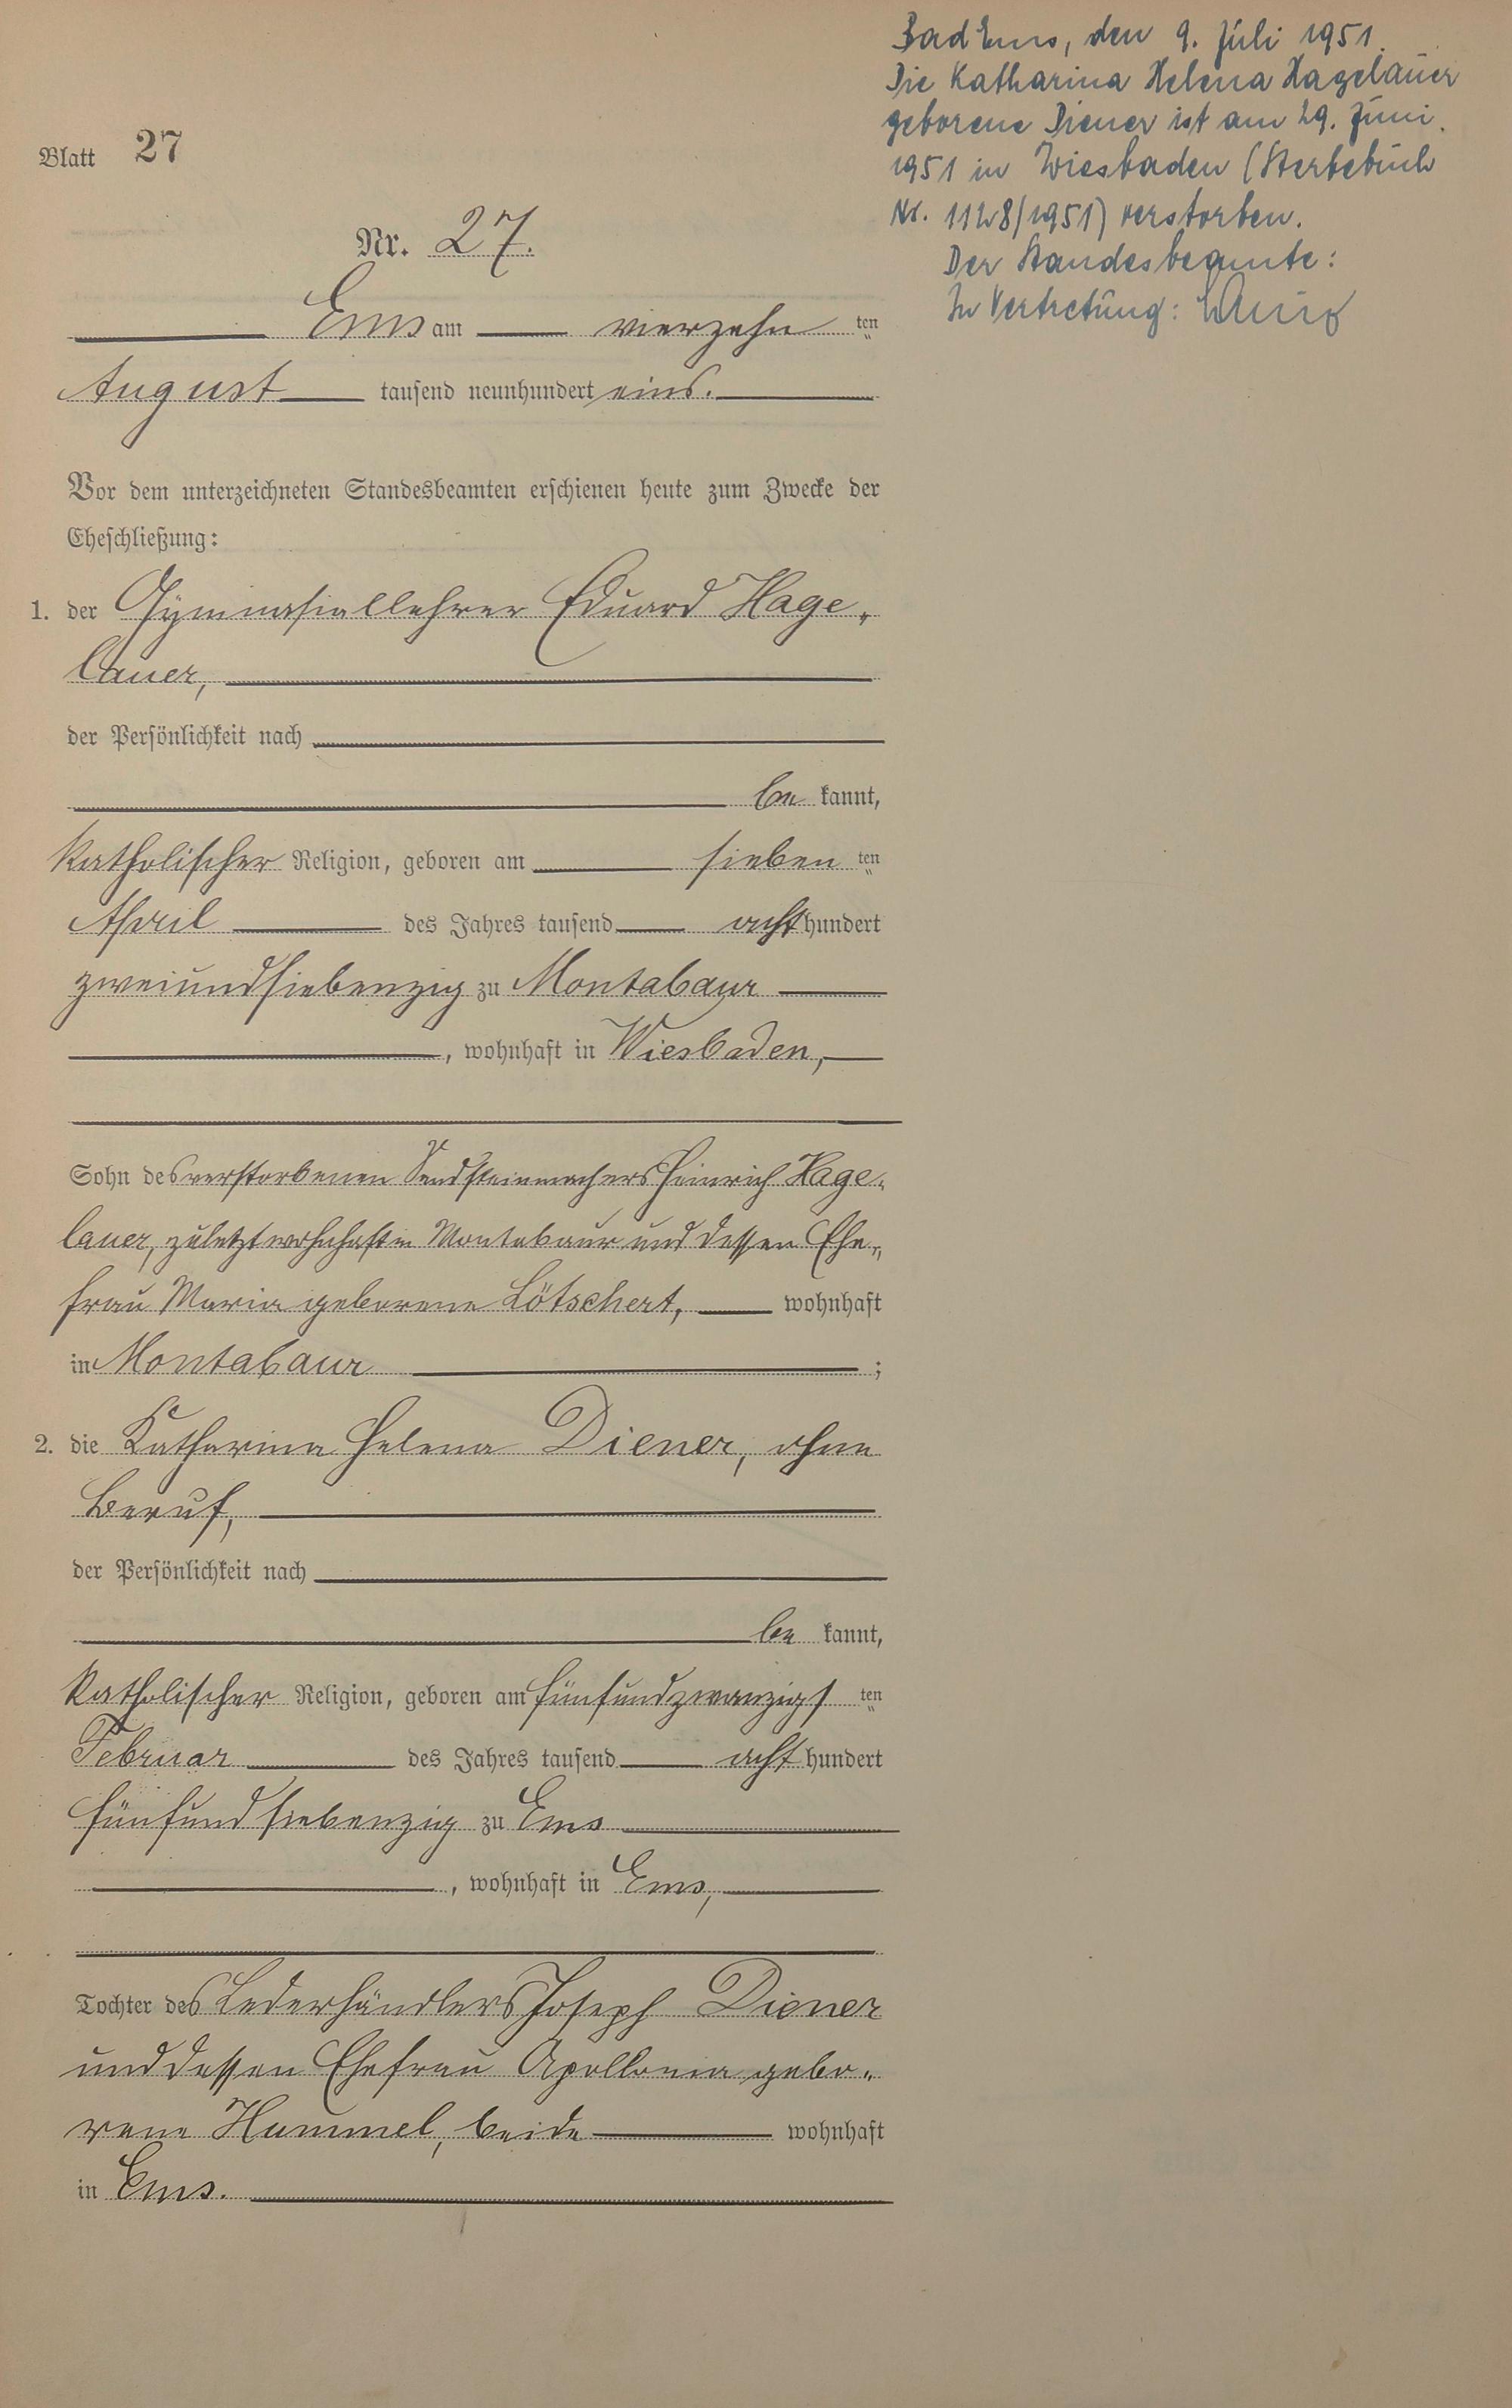 Blatt 27
Nr. 27.
Ems am vierzehn ten
August tausend neunhundert eins.
Vor dem unterzeichneten Standesbeamten erschienen heute zum Zwecke der
Eheschließung:
1. der Gymnasiallehrer Eduard Hage-
lauer,
der Persönlichkeit nach
be kannt,
katholischer Religion, geboren am sieben ten
April des Jahres tausend acht hundert
zweiundsiebenzig zu Montabaur
, wohnhaft in Wiesbaden,
Sohn des verstorbenen Heinrich Hage-
lauer, zuletzt wohnhaft in Montabaur und dessen Ehe-
frau Maria geborene Lötschert, wohnhaft
in Montabaur ;
2. die Katharina Helena Diener, ohne
Beruf,
der Persönlichkeit nach
be kannt,
katholischer Religion, geboren am fünfundzwanzigs ten
Februar des Jahres tausend acht hundert
fünfundsiebenzig zu Ems
, wohnhaft in Ems,
Tochter des Lederhändlers Joseph Diener
und dessen Ehefrau Apollonia gebo-
rene Hummel, beide wohnhaft
in Ems.
Bad Ems, den 9. Juli 1951.
Die Katharina Helena Hagelauer
geborene Diener ist am 29. Juni
1951 in Wiesbaden (Sterbebuch
Nr. 1128/1951) verstorben.
Der Standesbeamte:
In Vertretung: